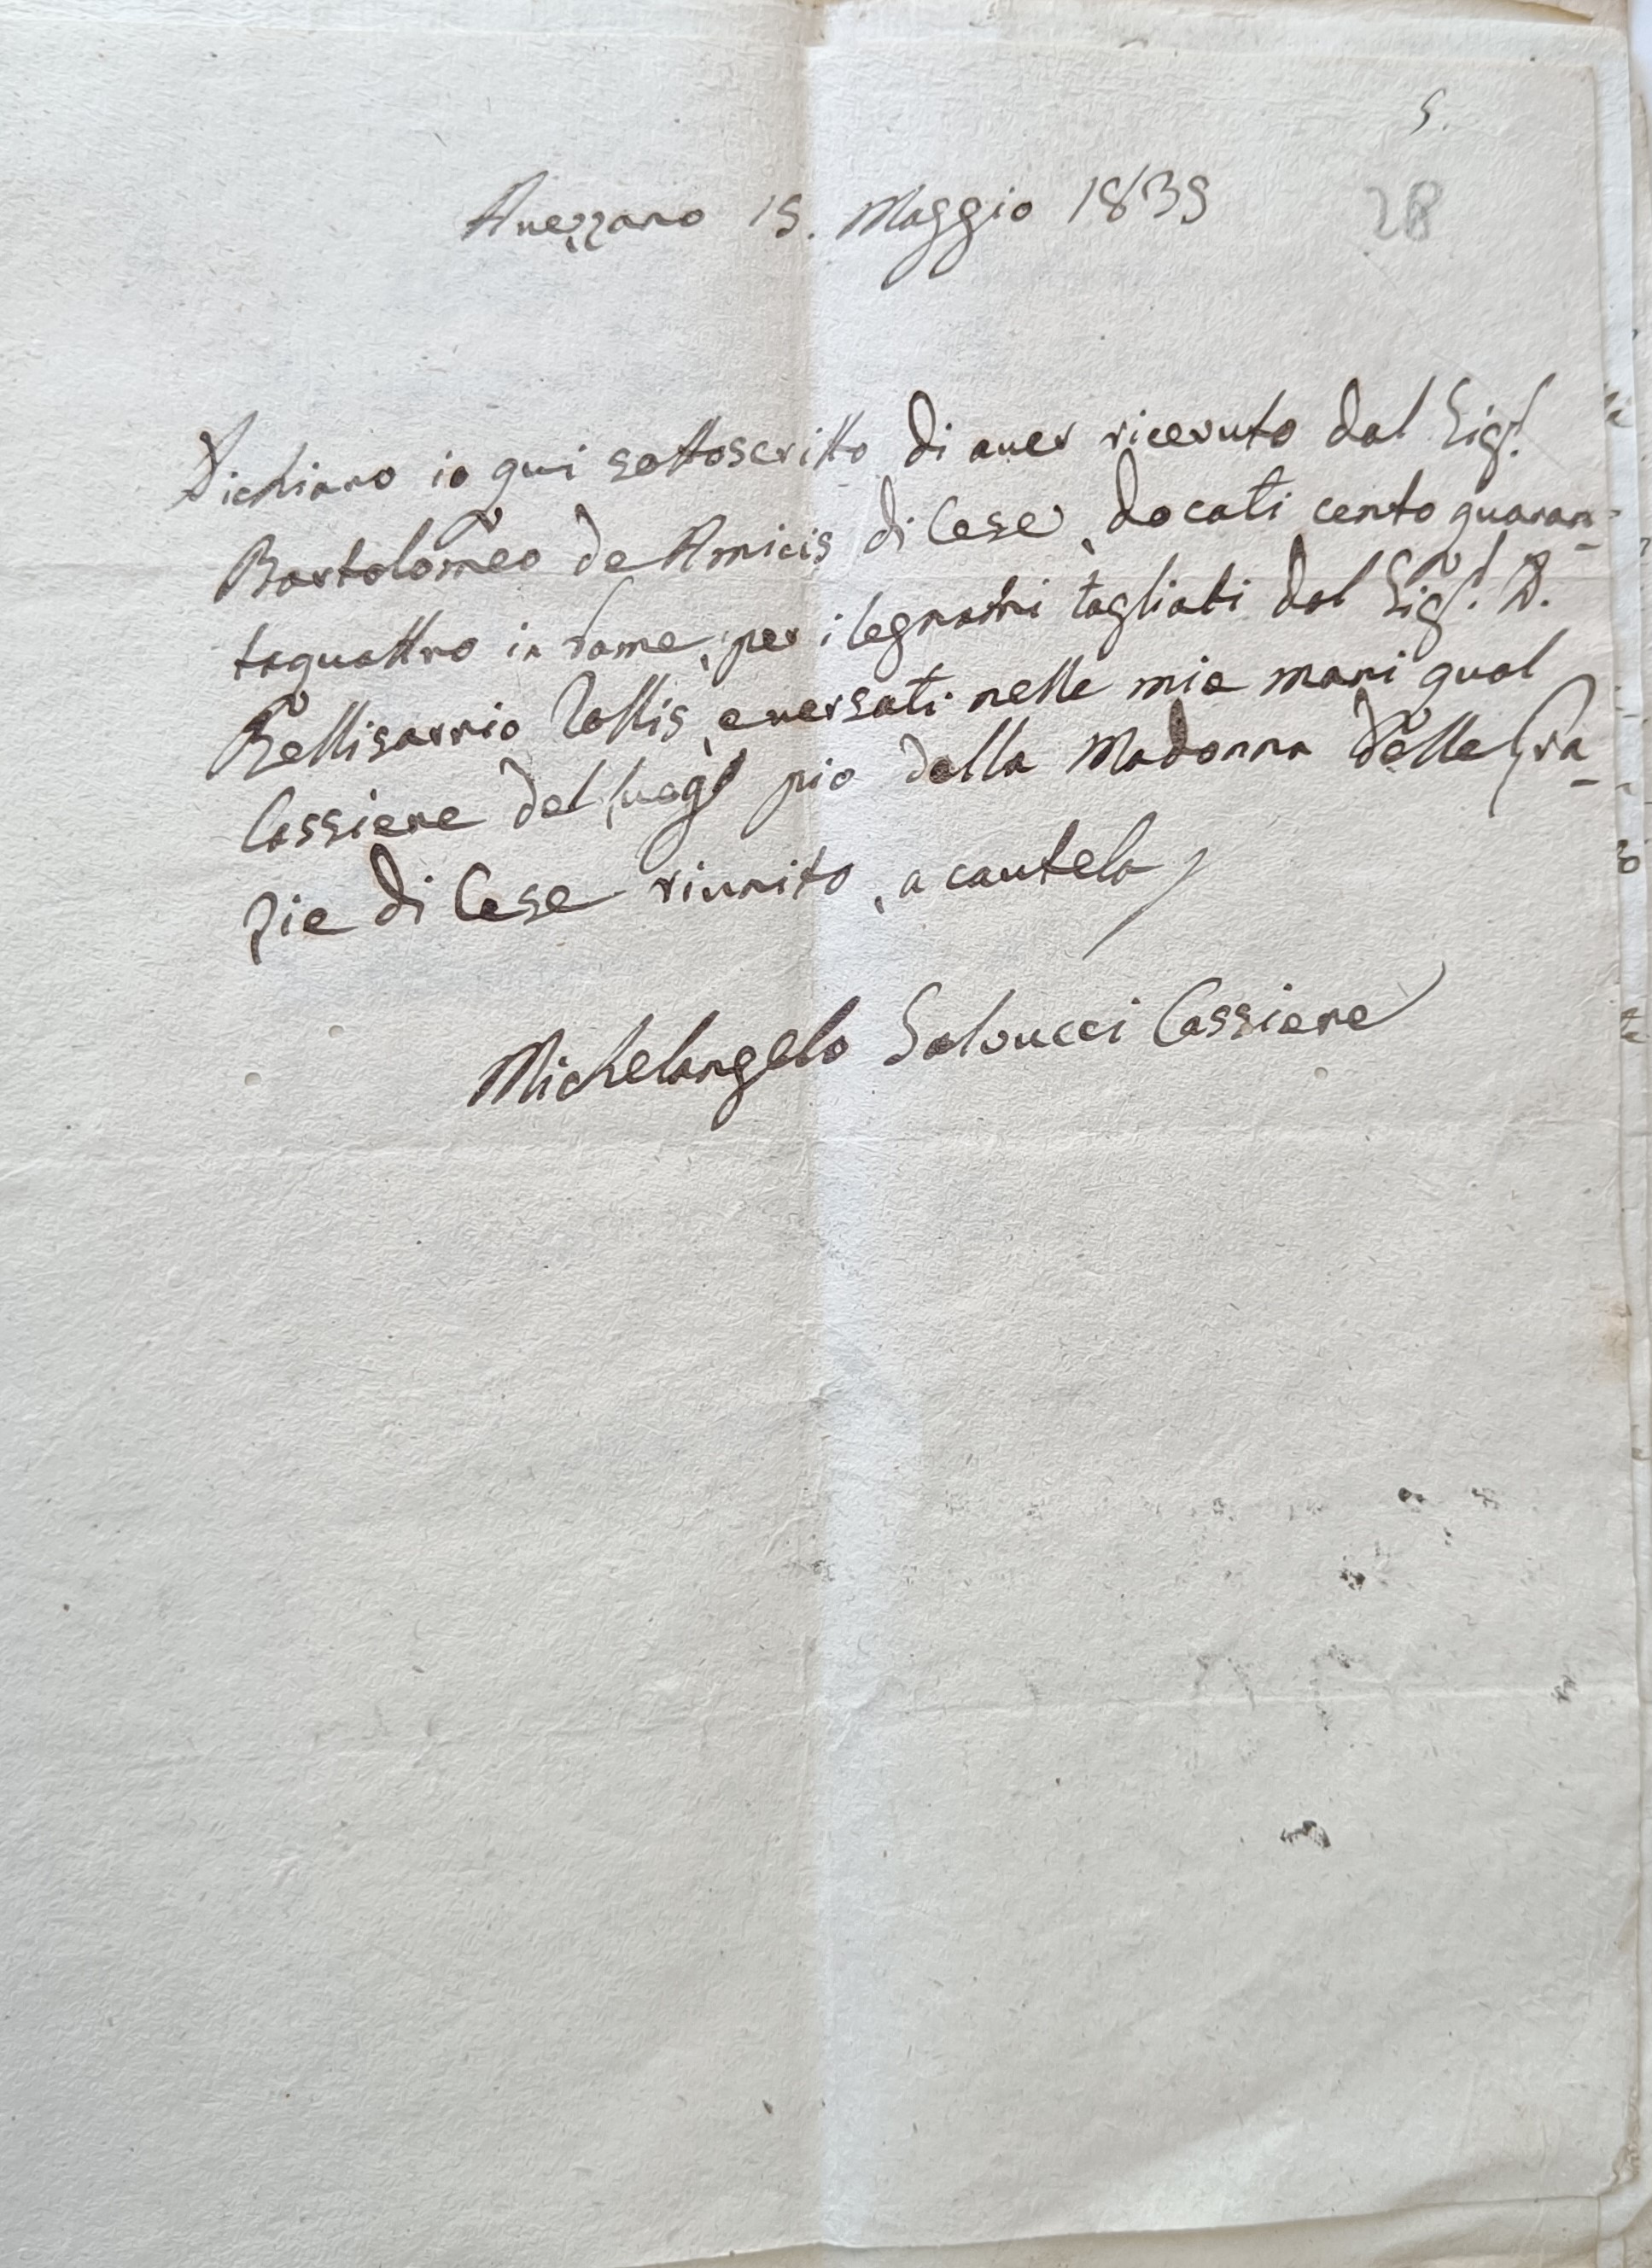 5.
28
Avezzano 15. Maggio 1835
Dichiaro io qui sottoscritto di aver ricevuto dal Sigr.
Bartolomeo de Amicis di Cese, docati cento quaran-
taquattro in rame, per i legnami tagliati dal Sigr. D.
Bellisarrio, e versati nelle mie mani qual
Cassiere del luogo pio della Madonna delle Gra-
zie di Cese riunito, a cautela
Michelangelo Salvucci Cassiere